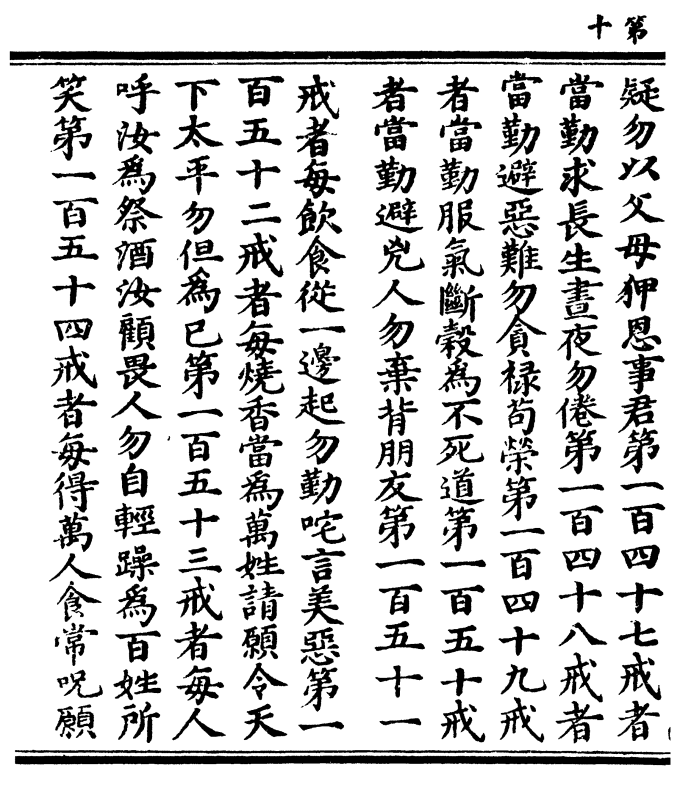 第十
疑勿以父母狎恩事君第一百四十七戒者
當勤求長生晝夜勿倦第一百四十八戒者
當勤避惡難勿貪祿苟榮第一百四十九戒
者當勤服氣斷穀為不死道第一百五十戒
者當勤避兇人勿棄背朋友第一百五十一
戒者每飲食從一邊起勿勤咤言美惡第一
百五十二戒者每燒香當為萬姓請願令天
下太平勿但為已第一百五十三戒者每人
呼汝為祭酒汝顧畏人勿自輕躁為百姓所
笑第一百五十四戒者每得萬人食常呪願